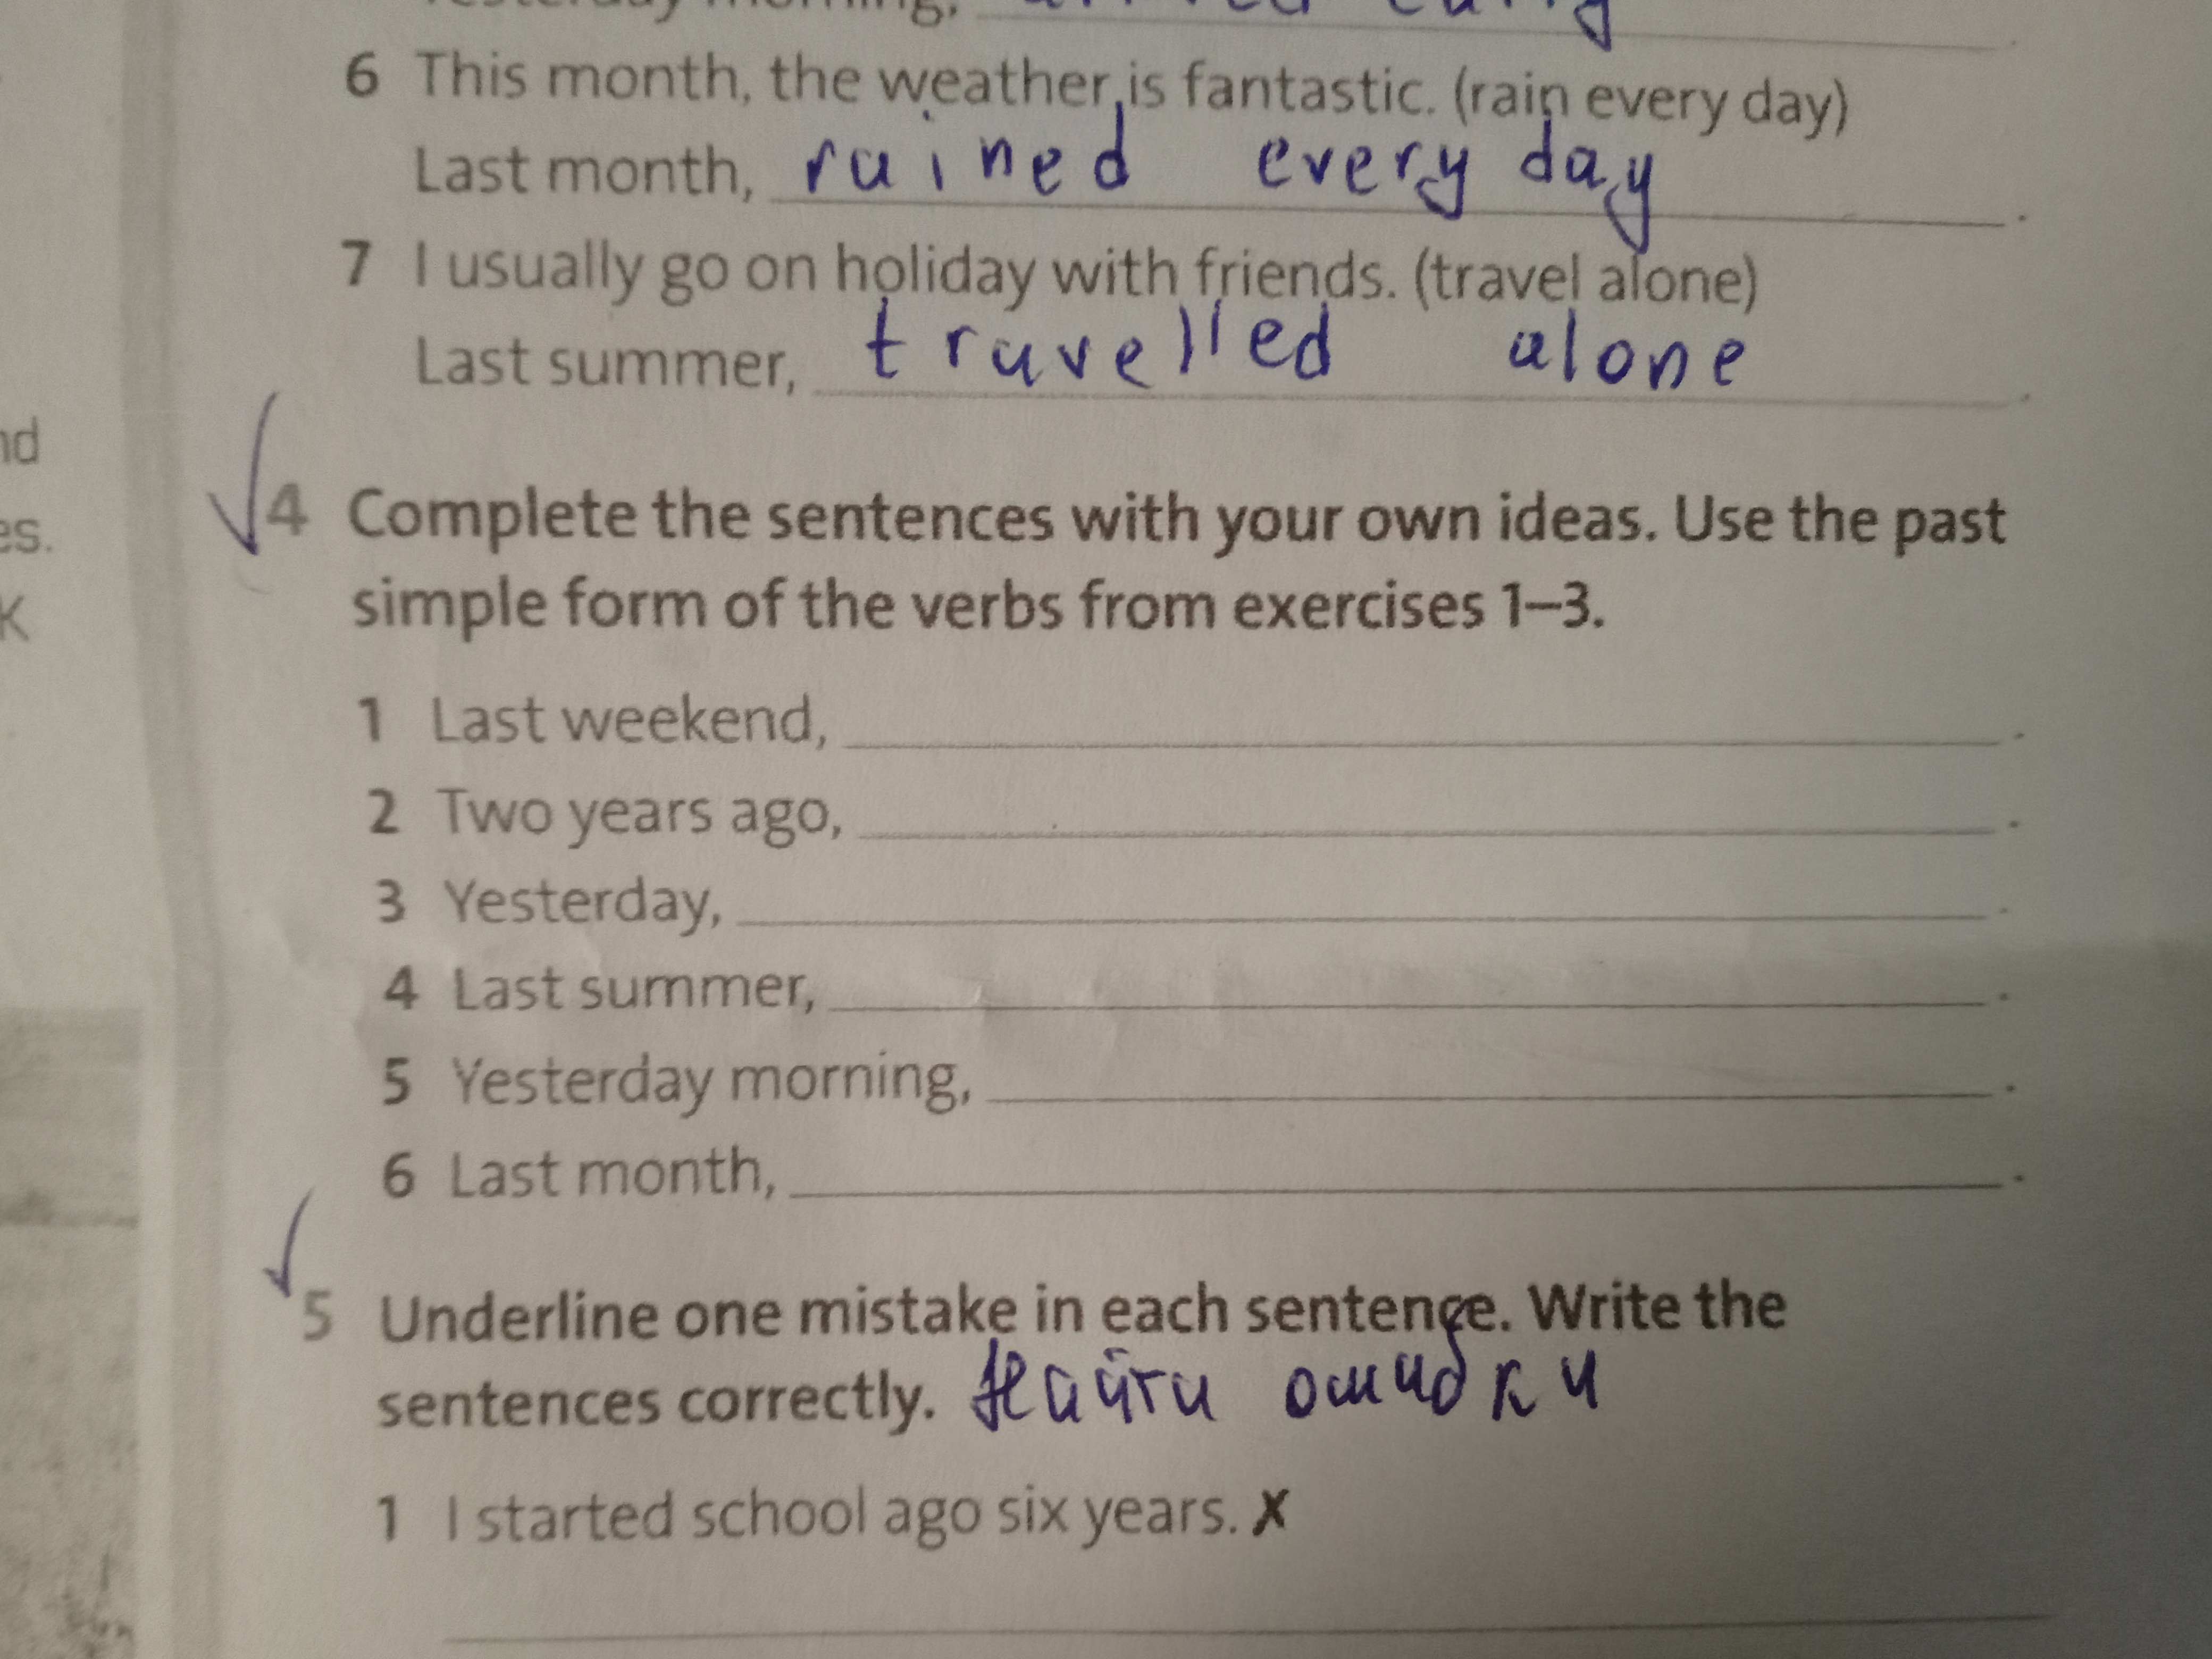 6 This month, the weather is fantastic. (rain every day)
Last month, rained every day.
7 I usually go on holiday with friends. (travel alone)
Last summer, travelled alone.
nd
es.
K
4 Complete the sentences with your own ideas. Use the past
simple form of the verbs from exercises 1–3.
1 Last weekend, .
2 Two years ago, .
3 Yesterday, .
4 Last summer, .
5 Yesterday morning, .
6 Last month, .
5 Underline one mistake in each sentence. Write the
sentences correctly. Найти ошибки
1 I started school ago six years. X